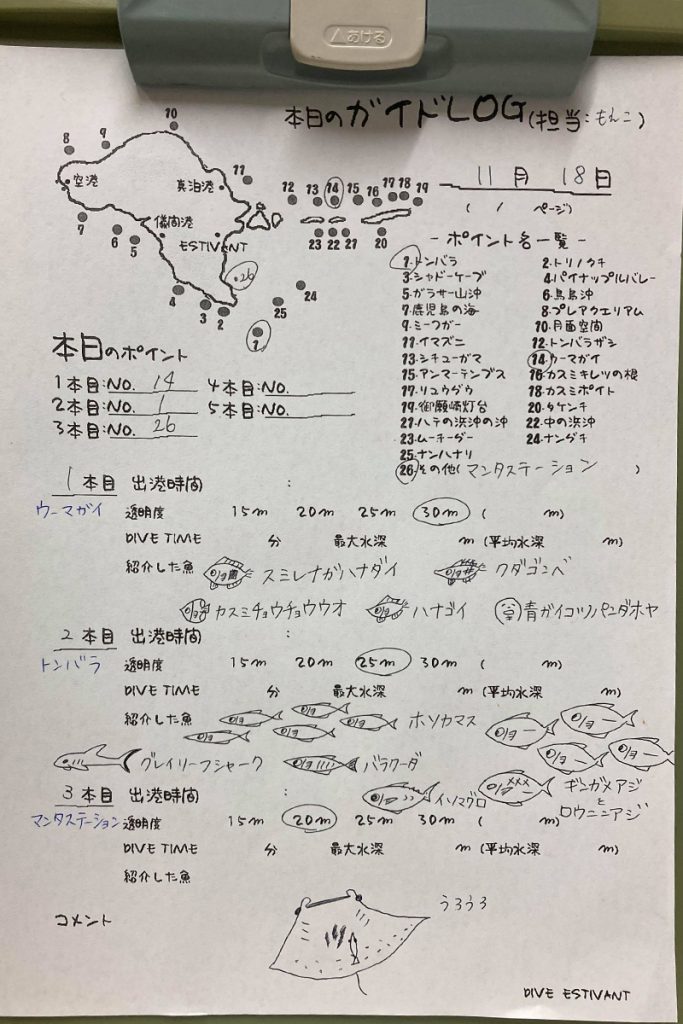 △あける
本日のガイドLOG(担当:もんこ)
11月 18日
( / ページ)
10
8 9
空港 真泊港 11
12 13 14 15 16 17 18 19
7 6 5 儀間港 ESTIVANT
23 22 21 20
26
4 3 2 25 24
1
- ポイント名一覧 -
1.トンバラ 2.トリノクチ
3.シャドーケーブ 4.パイナップルバレー
5.ガラサー山沖 6.鳥島沖
7.鹿児島の海 8.プレアクエリアム
9.ミーフガー 10.月面空間
11.イマズニ 12.トンバラザシ
13.シチューガマ 14.ウーマガイ
15.アンマーテンプス 16.カスミキレツの根
17.リュウグウ 18.カスミポイト
19.御願崎灯台 20.タケンチ
21.ハテの浜沖の沖 22.中の浜沖
23.ムーチーグー 24.ナングチ
25.ナンハナリ
26.その他(マンタステーション )
本日のポイント
1本目:NO. 14 4本目:NO.
2本目:NO. 1 5本目:NO.
3本目:NO. 26
1本目 出港時間 :
ウーマガイ 透明度 15m 20m 25m 30m ( m)
DIVE TIME 分 最大水深 m (平均水深 m)
紹介した魚 スミレナガハナダイ クダゴンベ
カスミチョウチョウウオ ハナゴイ 青ガイコツパンダホヤ
2本目 出港時間 :
トンバラ 透明度 15m 20m 25m 30m ( m)
DIVE TIME 分 最大水深 m (平均水深 m)
紹介した魚 ホソカマス
グレイリーフシャーク バラクーダ
イソマグロ ギンガメアジとロウニンアジ
3本目 出港時間 :
マンタステーション 透明度 15m 20m 25m 30m ( m)
DIVE TIME 分 最大水深 m (平均水深 m)
紹介した魚
うろうろ
コメント
DIVE ESTIVANT